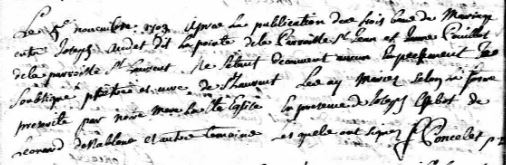 Le 5e novembre 1703 Apres la publication de trois bans de Mariage
entre Joseph Audet dit la pointe de la Parroisse St Jean et Jeanne Pouillot
de la parroisse St Laurent ne sestant decouvert aucun Empeschement Je
soubsigné ptre et curé de St Laurent Les ay Mariez selon la forme
prescrite par notre Mere la Ste Eglise En presence de Joseph de
Leonard et autres temoins lesquels ont signez f Poncelet p